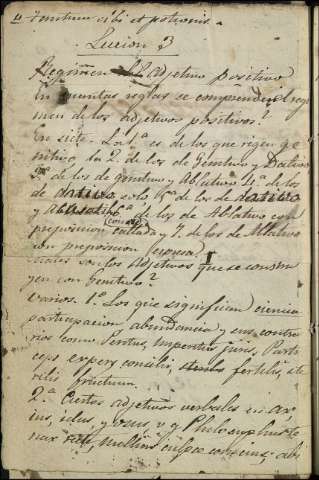 cibi et potionis.
Leccion 3
Regimen del Adjetivo positivo
En cuantas reglas se comprende el regi
men de los adjetivos positivos?
En siete. La 1ª es de los que rigen ge
nitivo, la 2ª de los de Genitivo y Dativo
3ª de los de Genitivo y Ablativo 4ª de los
de dativo solo 5ª de los de dativo
y Acusativo 6ª de los de Ablativo con
preposicion callada y 7ª de los de Ablativo
con preposicion espresa
Cuales son los Adjetivos que se constru
yen con Genitivo?
Varios. 1º Los que significan ciencia
participacion, abundancia y sus contra
rios como Peritus, Imperitus juris, Parti
ceps expers consilii, fertilis, ste
rilis frucium.
2ª Ciertos adjetivos verbales en ax
ius, idus, y osus, v g Philosophus te
nax culpae